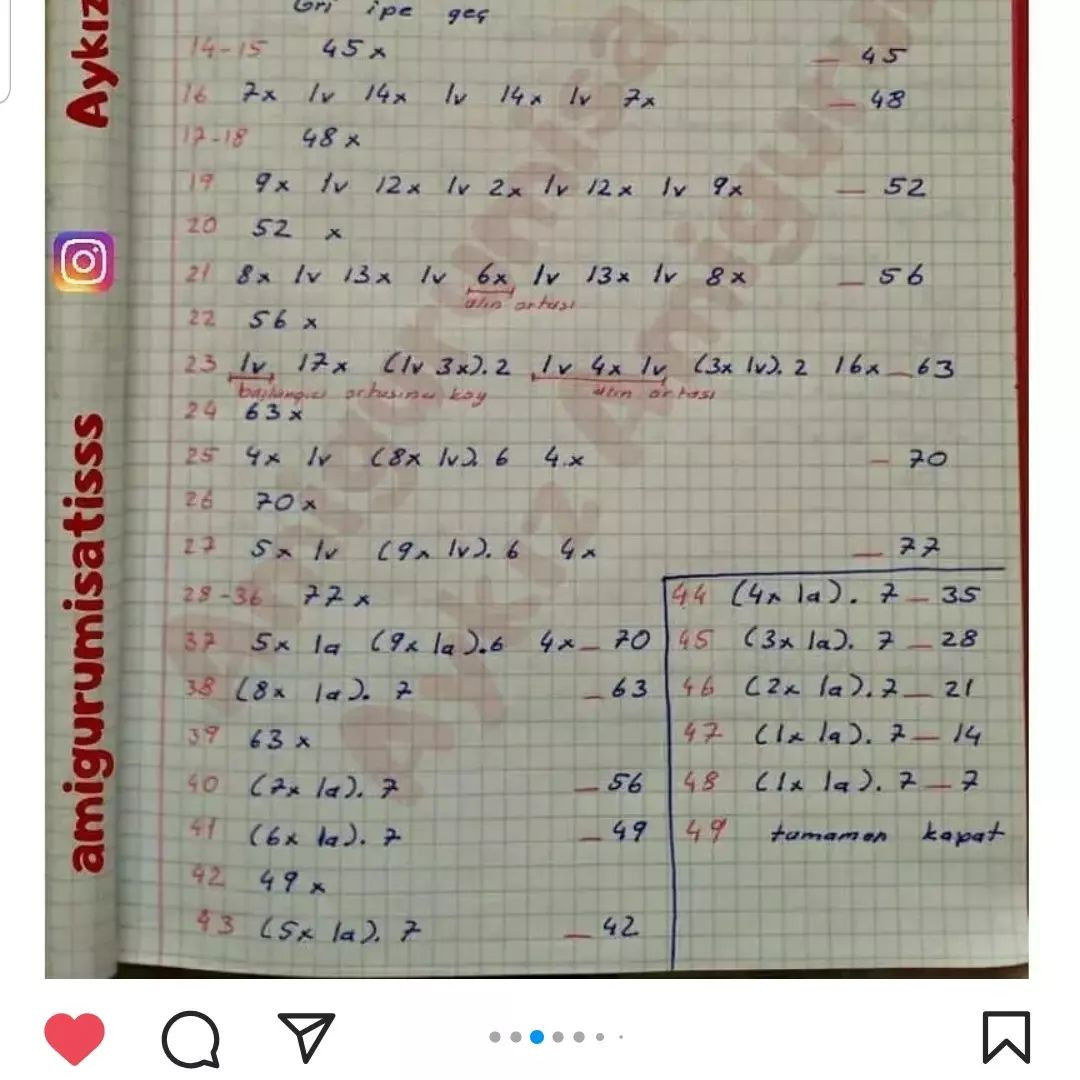 Gri ipe geç
14-15 45x — 45
16 7x 1v 14x 1v 14x 1v 7x — 48
17-18 48x
19 9x 1v 12x 1v 2x 1v 12x 1v 9x — 52
20 52 x
21 8x 1v 13x 1v 6x 1v 13x 1v 8x — 56
alın ortası
22 56 x
23 1v 17x (1v 3x).2 1v 4x 1v (3x 1v).2 16x — 63
başlangıcı ortasına koy alın ortası
24 63x
25 4x 1v (8x 1v).6 4x — 70
26 70x
27 5x 1v (9x 1v).6 4x — 77
28-36 77x
37 5x 1a (9x 1a).6 4x — 70
38 (8x 1a).7 — 63
39 63x
40 (7x 1a).7 — 56
41 (6x 1a).7 — 49
42 49x
43 (5x 1a).7 — 42
44 (4x 1a).7 — 35
45 (3x 1a).7 — 28
46 (2x 1a).7 — 21
47 (1x 1a).7 — 14
48 (1x 1a).7 — 7
49 tamamen kapat
Aykız
amigurumisatisss
Amigurumisa
Aykız Amigurum